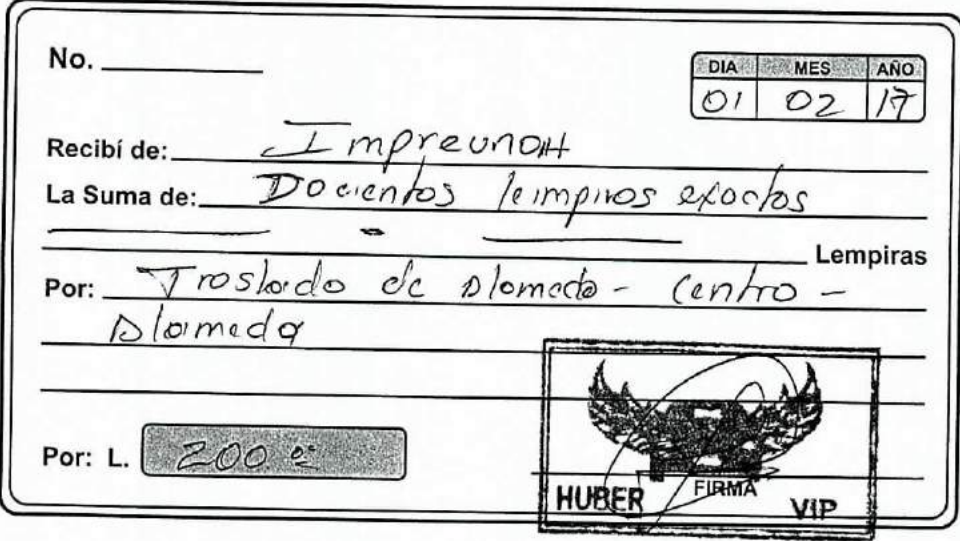 No.
DIA MES AÑO
01 02 17
Recibí de: Impreunah
La Suma de: Docientos leimpiros exactos
Lempiras
Por: Traslado de Alameda - Centro -
Alameda
Por: L. 200.00
FIRMA
HUBER VIP